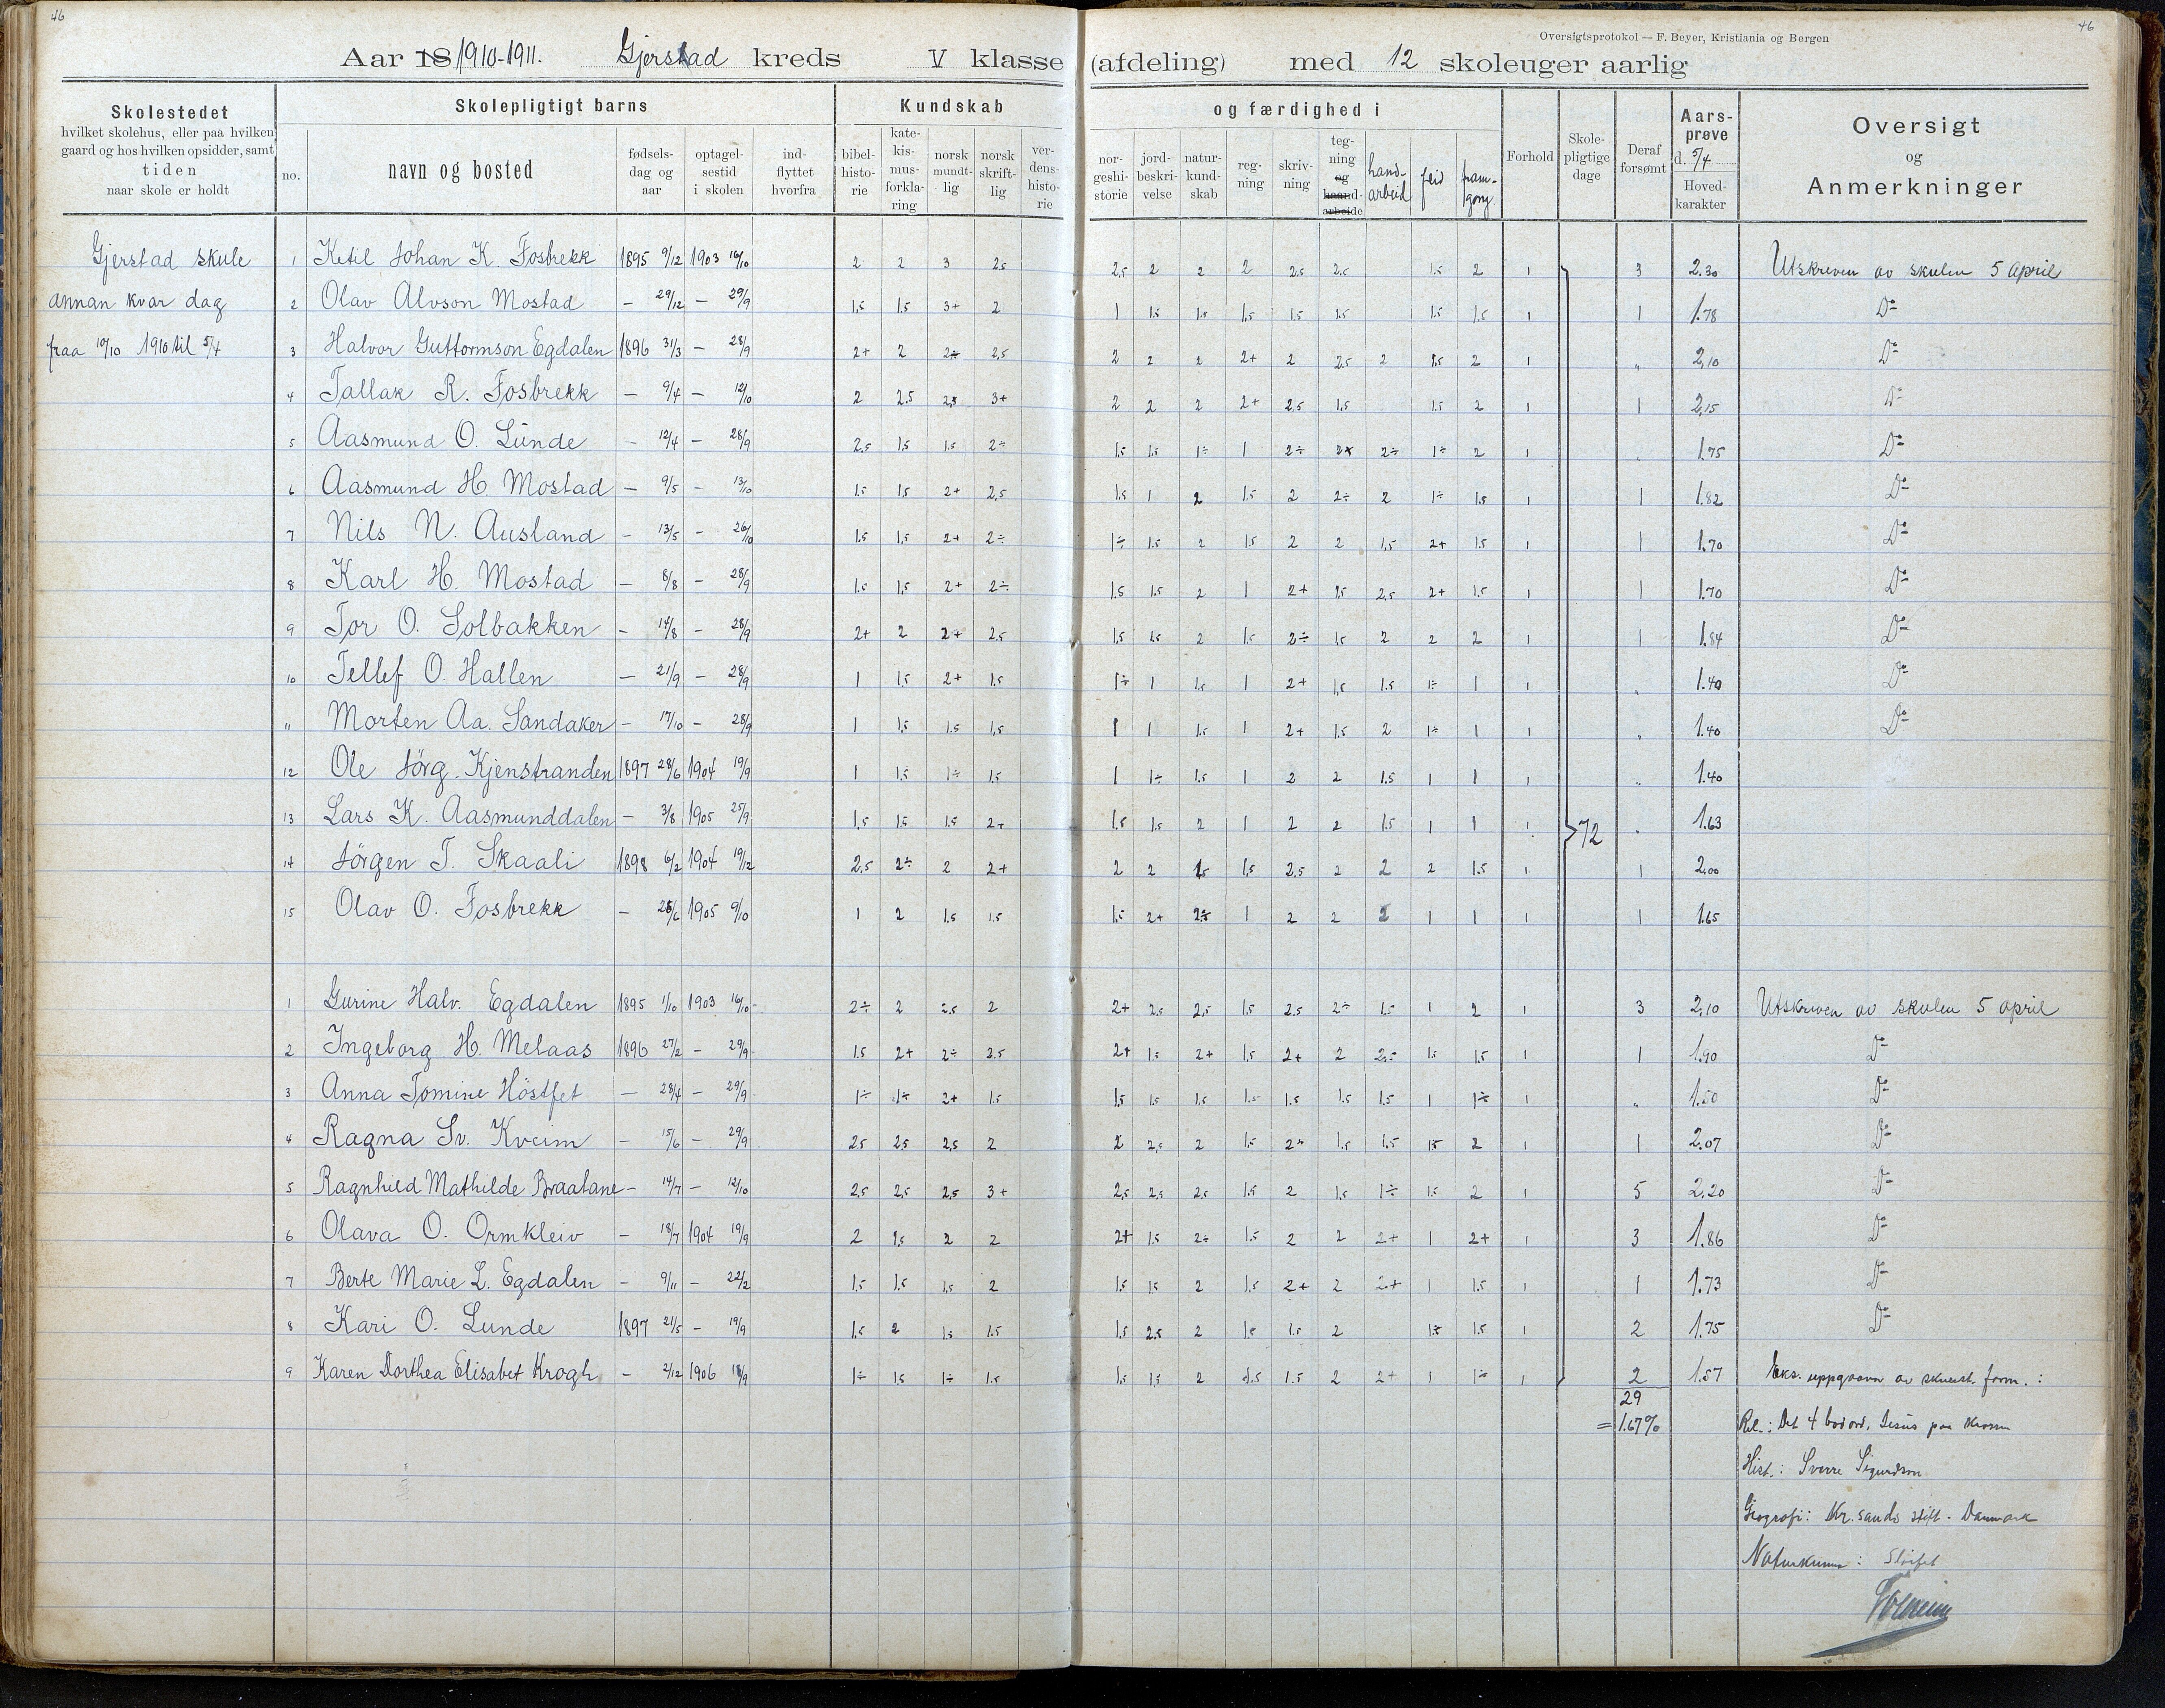 46
46
Oversigtsprotokol — F. Beyer, Kristiania og Bergen
Aar 18 1910-1911. Gjerstad kreds V klasse (afdeling) med 12 skoleuger aarlig
Skolestedet
hvilket skolehus, eller paa hvilken
gaard og hos hvilken opsidder, samt
tiden
naar skole er holdt
Skolepligtigt barns
no.
navn og bosted
fødsels-
dag og
aar
optagel-
sestid
i skolen
ind-
flyttet
hvorfra
Kundskab
bibel-
histo-
rie
kate-
kis-
mus-
forkla-
ring
norsk
mundt-
lig
norsk
skrift-
lig
ver-
dens-
histo-
rie
og færdighed i
nor-
geshi-
storie
jord-
beskri-
velse
natur-
kund-
skab
reg-
ning
skriv-
ning
teg-
ning
og
haand-
arbeide
hand-
arbeid
flid
fram-
gong
Forhold
Skole-
pligtige
dage
Deraf
forsømt
Aars-
prøve
d. 5/4
Hoved-
karakter
Oversigt
og
Anmerkninger
Gjerstad skule
annan kvar dag
fraa 10/10 1910 til 5/4
1 Ketil Johan K. Fosbrekk 1895 9/12 1903 16/10 2 2 3 2.5 2,5 2 2 2 2.5 2.5 1.5 2 1 3 2.30 Utskreven av skulen 5 april
2 Olav Alvson Mostad — 29/12 — 29/9 1,5 1.5 3+ 2 1 1.5 1.5 1,5 1.5 1.5 1.5 1.5 1 1 1.78 Do
3 Halvor Guttormson Egdalen 1896 31/3 — 28/9 2+ 2 2÷ 2,5 2 2 2 2+ 2 2.5 2 1.5 2 1 " 2,10 Do
4 Tallak R. Fosbrekk — 9/4 — 12/10 2 2.5 2,5 3+ 2 2 2 2+ 2.5 1.5 1.5 2 1 1 2,15 Do
5 Aasmund O. Lunde — 12/4 — 28/9 2.5 1,5 1.5 2÷ 1.5 1.5 1÷ 1 2÷ 2÷ 1÷ 2 1 1.75 Do
6 Aasmund H. Mostad — 9/5 — 13/10 1.5 1,5 2+ 2,5 1.5 1 2 1.5 2 2÷ 2 1÷ 1.5 1 1 1.82 Do
7 Nils N. Ausland — 13/5 — 26/10 1.5 1,5 2+ 2÷ 1÷ 1.5 2 1.5 2 2 1,5 2+ 1.5 1 1 1.70 Do
8 Karl H. Mostad — 8/8 — 28/9 1.5 1,5 2+ 2÷ 1.5 1.5 2 1 2+ 1,5 2,5 2+ 1.5 1 1 1.70 Do
9 Tor O. Solbakken — 14/8 — 28/9 2+ 2 2+ 2.5 1.5 1.5 2 1.5 2÷ 1.5 2 2 2 1 1 1.84 Do
10 Tellef O. Hallen — 21/9 — 28/9 1 1,5 2+ 1.5 1÷ 1 1.5 1 2+ 1,5 1.5 1÷ 1 1 " 1.40 Do
11 Morten Aa. Sandaker — 17/10 — 28/9 1 1,5 1.5 1,5 1 1 1.5 1 2+ 1.5 2 1÷ 1 1 " 1.40 Do
12 Ole Jörg. Kjenstranden 1897 28/6 1904 19/9 1 1.5 1÷ 1.5 1 1÷ 1.5 1 2 2 1.5 1 1 1 " 1.40
13 Lars K. Aasmunddalen — 3/8 1905 25/9 1,5 1.5 1.5 2+ 1.5 1.5 2 1 2 2 1.5 1 1 1 72 " 1.63
14 Jörgen T. Skaali 1898 6/2 1904 19/12 2.5 2÷ 2 2+ 2 2 1.5 1,5 2.5 2 2 2 1.5 1 1 2.00
15 Olav O. Fosbrekk — 25/6 1905 9/10 1 2 1,5 1.5 1.5 2+ 2÷ 1 2 2 2 1 1 1 1 1.65
1 Gurine Halv. Egdalen 1895 1/10 1903 16/10 2÷ 2 2.5 2 2+ 2,5 2,5 1.5 2.5 2÷ 1.5 1 2 1 3 2,10 Utskreven av skulen 5 april
2 Ingeborg H. Melaas 1896 27/2 — 29/9 1.5 2+ 2÷ 2.5 2+ 1.5 2+ 1.5 2+ 2 2.5 1.5 1.5 1 1 1.90 Do
3 Anna Tomine Höstfet — 28/4 — 29/9 1÷ 1÷ 2+ 1.5 1.5 1.5 1.5 1.5 1.5 1.5 1.5 1 1÷ 1 " 1.50 Do
4 Ragna Sv. Kveim — 15/6 — 29/9 2.5 2,5 2,5 2 2 2,5 2 1.5 2+ 1.5 1.5 1.5 2 1 1 2.07 Do
5 Ragnhild Mathilde Braatane — 14/7 — 12/10 2.5 2,5 2,5 3+ 2,5 2,5 2.5 1.5 2 1.5 1÷ 1.5 2 1 5 2.20 Do
6 Olava O. Ormkleiv — 18/7 1904 19/9 2 1,5 2 2 2+ 1.5 2÷ 1.5 2 2 2+ 1 2+ 1 3 1.86 Do
7 Berte Marie L. Egdalen — 9/11 — 22/2 1.5 1.5 1,5 2 1.5 1.5 2 1.5 2+ 2 2+ 1 1.5 1 1 1.73 Do
8 Kari O. Lunde 1897 21/5 — 19/9 1.5 2 1.5 1.5 1.5 2.5 2 1.5 1.5 2 1.5 1.5 1 2 1.75 Do
9 Karen Dorthea Elisabet Krogh — 2/12 1906 18/9 1÷ 1.5 1÷ 1.5 1.5 1.5 2 1.5 1.5 2 2+ 1 1÷ 1 2 1.57 Eks. uppgaavn av form. :
29
= 1.67%
Rel.: Det 4 bodord, Jesus paa krossen
Hist.: Sverre Sigurdson
Geografi: Kr.sands stift - Danmark
Naturkunna :